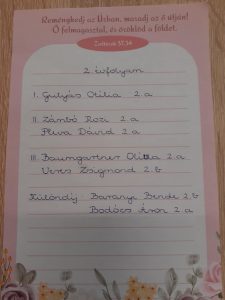 Reménykedj az Úrban, maradj az ő útján!
Ő felmagasztal, és öröklöd a földet.
Zsoltárok 37,34
2. évfolyam
I. Gulyás Otília 2.a
II. Zámbó Rozi 2.a
Pliva Dávid 2.a
III. Baumgartner Olívia 2.a
Veres Zsigmond 2.b
Különdíj Baranyi Bende 2.b
Bodócs Áron 2.a